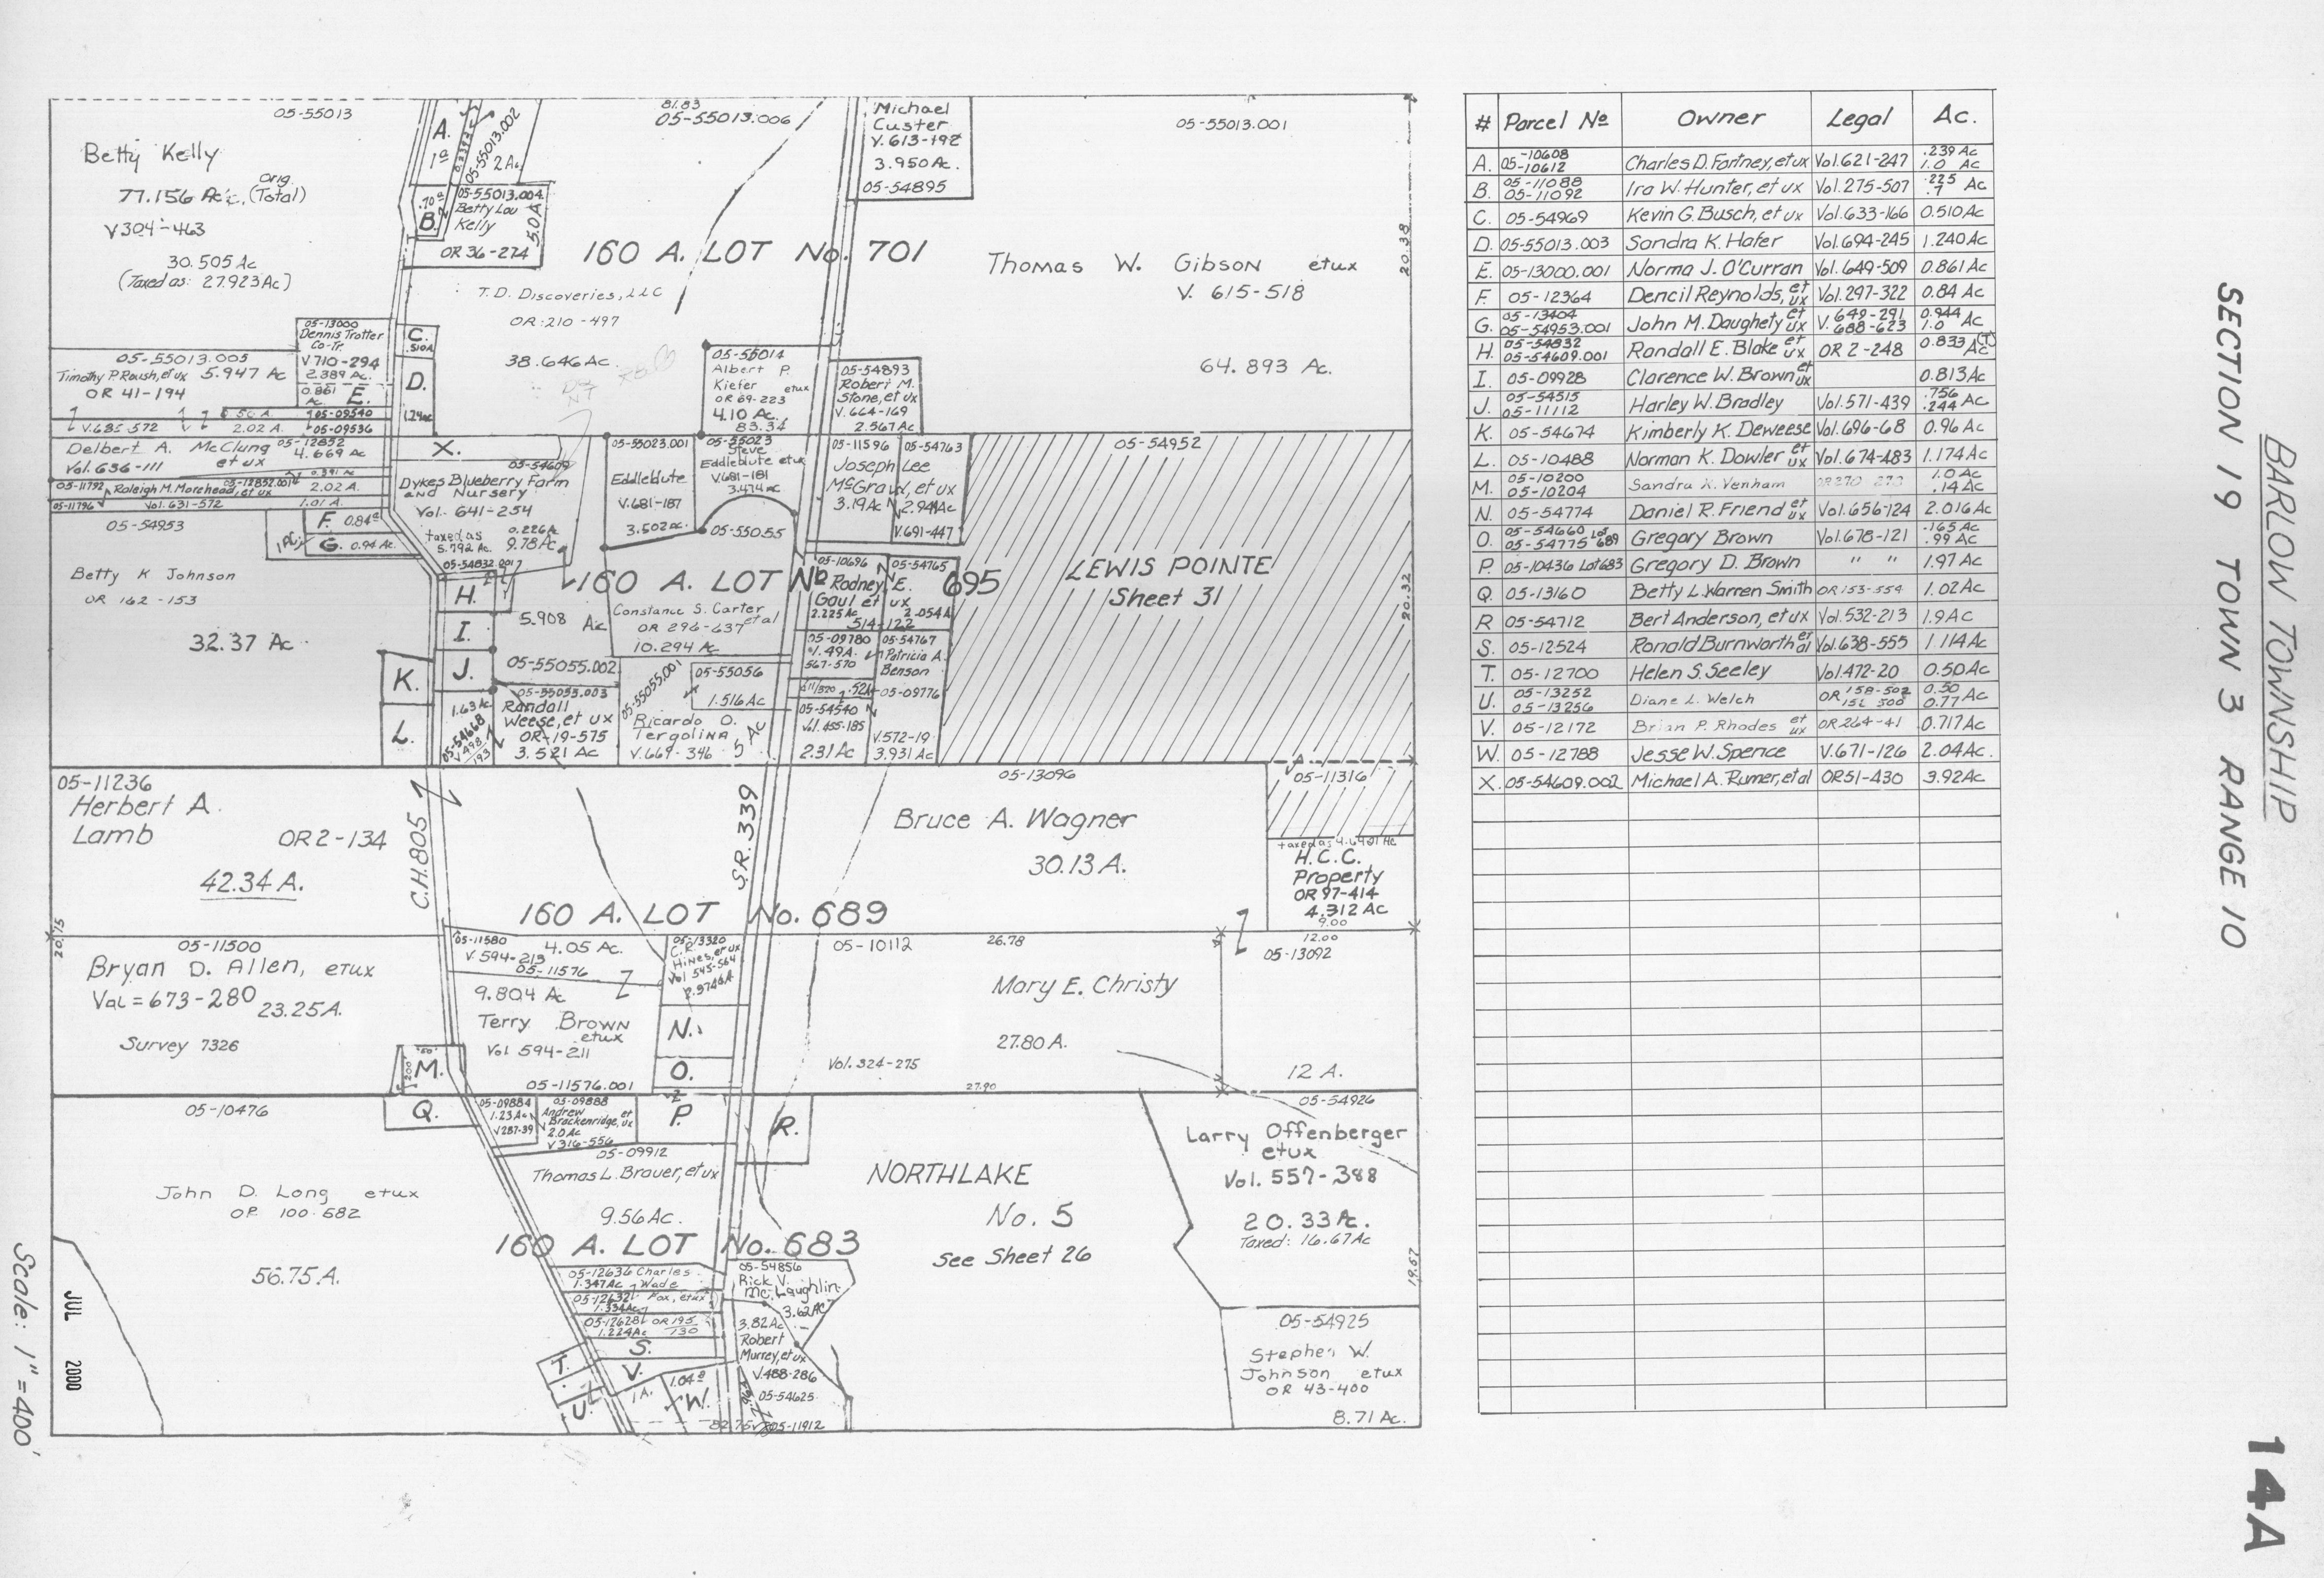 05-55013
Betty Kelly
Orig
77.156 Ac. (Total)
V304-463
30.505 Ac
(Taxed as: 27.923 Ac)
A.
1ª
05-55013.002
2 Ac
.70ª
B.
05-55013.004
Betty Lou
Kelly
5.0 A
OR 36-274
81.83
05-55013.006
Michael
Custer
V. 613-192
3.950 Ac.
05-54895
05-55013.001
160 A. LOT No. 701
Thomas W. Gibson etux
V. 615-518
64.893 Ac.
20.38
T.D. Discoveries, LLC
OR: 210-497
38.646 Ac.
05-13000
Dennis Trotter
Co-Tr.
V710-294
2.389 Ac.
0.861
Ac.
E.
C.
.510A
D.
1.24ac
05-55013.005
Timothy P. Roush, et ux 5.947 Ac
OR 41-194
.50 A. 05-09540
V.685-572 2.02 A. 05-09536
Delbert A. McClung 05-12852
et ux 4.669 Ac
Vol. 636-111
0.391 Ac
05-11792 Raleigh M. Morehead, et ux 05-12852.001 2.02 A.
05-11796 Vol. 631-572 1.01 A.
05-54953
F. 0.84ª
1 Ac
G. 0.94 Ac.
Betty K Johnson
OR 162-153
32.37 Ac
05-55014
Albert P.
Kiefer etux
OR 69-223
4.10 Ac.
83.34
05-54893
Robert M.
Stone, et ux
V. 664-169
2.567 Ac
X.
05-54609
Dykes Blueberry Farm
and Nursery
Vol. 641-254
0.226A
taxed as
5.792 Ac. 9.78 Ac.
05-54832.001
05-55023.001
Eddleblute
V.681-187
3.502 ac.
05-55023
Steve
Eddleblute etux
V.681-181
3.474 ac
05-55055
05-11596
05-54763
Joseph Lee
McGraw, et ux
3.19 Ac
2.94 Ac
V.691-447
05-54952
LEWIS POINTE
Sheet 31
20.32
160 A. LOT No 695
05-10696
05-54765
Rodney E.
Gaul et ux
2.225 Ac 2.054 A
514-122
H.
I.
J.
K.
L.
5.908 Ac
Constance S. Carter
et al
OR 296-637
10.294 Ac
05-09780
1.49A.
567-570
05-54767
Patricia A.
Benson
.52A
05-09776
05-55055.002
05-55055.003
Randall
Weese, et ux
OR-19-575
3.521 Ac
1.63 Ac
05-54668
V498
193
05-55055.001
Ricardo O.
Tergolina
V.669-346
5 Ac
05-55056
1.516 Ac
05-54540
Vol. 455-185
2.31 Ac
V.572-19
3.931 Ac
05-11236
Herbert A.
Lamb
OR 2-134
42.34 A.
C.H. 805
S.R. 339
05-13096
Bruce A. Wagner
30.13 A.
05-11316
H.C.C.
Property
OR 97-414
4.312 Ac
9.00
12.00
160 A. LOT No. 689
20.75
05-11500
Bryan D. Allen, etux
Val = 673-280
23.25 A.
Survey 7326
M.
05-11580
4.05 Ac.
V. 594-213
05-11576
9.804 Ac
Terry Brown
etux
Vol 594-211
05-11576.001
05-13320
C.R.
Hines, et ux
Vol 545-564
N.
O.
05-10112
26.78
Mary E. Christy
27.80 A.
Vol. 324-275
27.90
05-13092
12 A.
05-10476
Q.
05-09884
1.23 Ac
V287-39
05-09888
Andrew
Brackenridge, et ux
2.0 Ac
V 316-556
P.
R.
05-09912
Thomas L. Brauer, et ux
9.56 Ac.
John D. Long etux
OR 100-682
56.75 A.
160 A. LOT No. 683
NORTHLAKE
No. 5
See Sheet 26
05-54926
Larry Offenberger
etux
Vol. 557-388
20.33 Ac.
Taxed: 16.67 Ac
19.67
05-54925
Stephen W.
Johnson etux
OR 43-400
8.71 Ac.
05-12636 Charles
1.347 Ac Wade
05-12632 Fox, etux
1.334 Ac
05-12628 OR195
1.224 Ac 130
S.
T.
U.
V.
1 A.
1.04ª
W.
05-54856
Rick V.
McLaughlin
3.62 AC
3.82 Ac
Robert
Murrey, et ux
V.488-286
05-54625
05-11912
# Parcel No Owner Legal Ac.
A. 05-10608 05-10612 Charles D. Fortney, et ux Vol. 621-247 .239 Ac 1.0 Ac
B. 05-11088 05-11092 Ira W. Hunter, et ux Vol. 275-507 .225 .7 Ac
C. 05-54969 Kevin G. Busch, et ux Vol. 633-166 0.510 Ac
D. 05-55013.003 Sandra K. Hafer Vol. 694-245 1.240 Ac
E. 05-13000.001 Norma J. O'Curran Vol. 649-509 0.861 Ac
F. 05-12364 Dencil Reynolds, et ux Vol. 297-322 0.84 Ac
G. 05-13404 05-54953.001 John M. Daughety et ux V. 649-291 688-623 0.944 1.0 Ac
H. 05-54832 05-54609.001 Randall E. Blake et ux OR 2-248 0.833 Ac (T)
I. 05-09928 Clarence W. Brown et ux 0.813 Ac
J. 05-54515 05-11112 Harley W. Bradley Vol. 571-439 .756 .244 Ac
K. 05-54674 Kimberly K. Deweese Vol. 696-68 0.96 Ac
L. 05-10488 Norman K. Dowler et ux Vol. 674-483 1.174 Ac
M. 05-10200 05-10204 Sandra K. Venham 1.0 Ac .14 Ac
N. 05-54774 Daniel R. Friend et ux Vol. 656-124 2.016 Ac
O. 05-54660 05-54775 Lot 689 Gregory Brown Vol. 678-121 .165 Ac .99 Ac
P. 05-10436 Lot 683 Gregory D. Brown " " 1.97 Ac
Q 05-13160 Betty L. Warren Smith OR 153-554 1.02 Ac
R 05-54712 Bert Anderson, et ux Vol. 532-213 1.9 Ac
S. 05-12524 Ronald Burnworth et al Vol. 638-555 1.114 Ac
T. 05-12700 Helen S. Seeley Vol. 472-20 0.50 Ac
U. 05-13252 05-13256 Diane L. Welch OR 158-502 0.50 0.77 Ac
V. 05-12172 Brian P. Rhodes et ux OR 264-41 0.717 Ac
W. 05-12788 Jesse W. Spence V. 671-126 2.04 Ac.
X. 05-54609.002 Michael A. Rumer, et al OR 51-430 3.92 Ac
BARLOW TOWNSHIP
SECTION 19 TOWN 3 RANGE 10
14A
Scale: 1" = 400'
JUL 2000